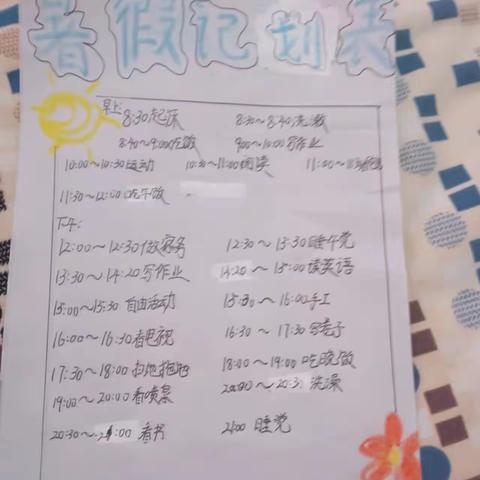 暑假记划表
早上:
8:30起床 8:30~8:40洗漱
8:40~9:00吃饭 9:00~10:00写作业
10:00~10:30运动 10:30~11:00阅读 11:00~
11:30~12:00吃午饭
下午:
12:00~12:30做家务 12:30~13:30睡午觉
13:30~14:20写作业 14:20~15:00读英语
15:00~15:30 自由活动 15:30~16:00手工
16:00~16:30看电视 16:30~17:30写卷子
17:30~18:00扫地拖地 18:00~19:00吃晚饭
19:00~20:00看喷泉 20:00~20:30 洗澡
20:30~21:00 看书 21:00 睡觉